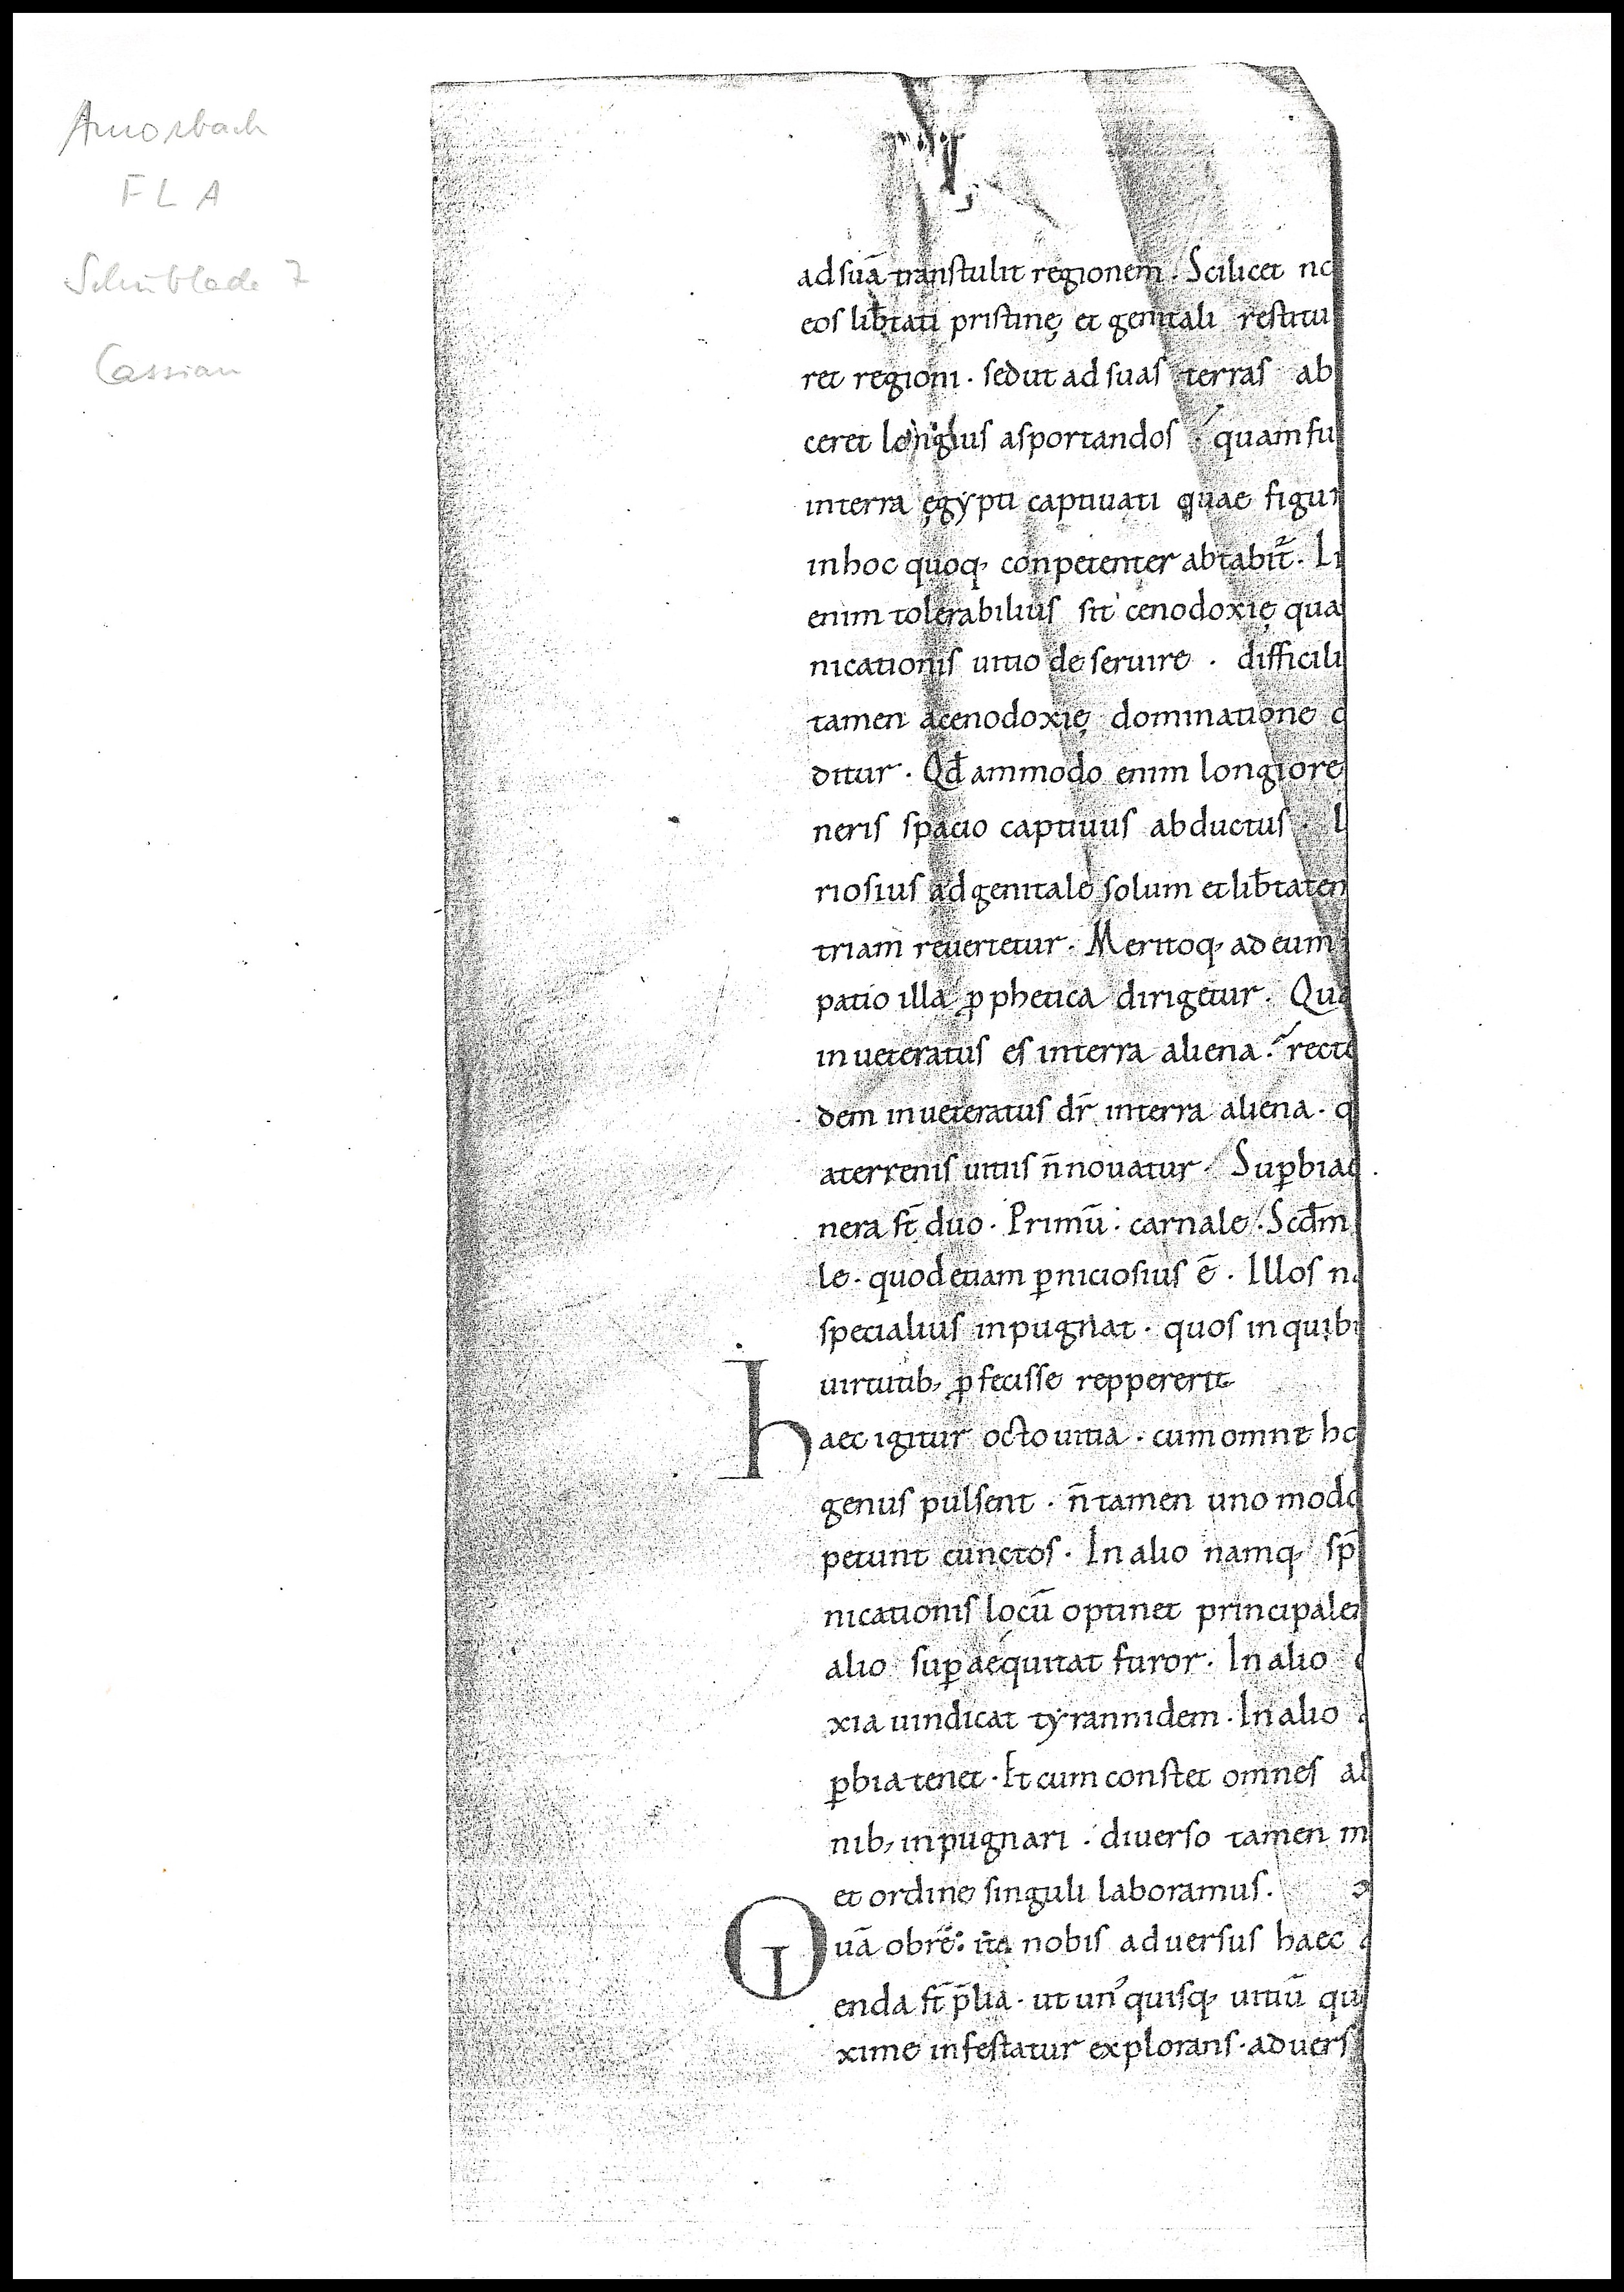 Amorbach
F L A
Schublade 7
Cassian
ad suā transtulit regionem. Scilicet
eos lib̄tati pristinę et genitali restitu
ret regioni. sed ut ad suas terras ab
ceret longius asportandos. quam fu
in terra ęgypti captiuati quae figur
in hoc quoq; conpetenter abtabit̄. Li
enim tolerabilius sit cenodoxię qua
nicationis uitio deseruire. difficili
tamen a cenodoxię dominatione
ditur. Qd̄ ammodo enim longiore
neris spacio captiuus abductus. l
riosius ad genitale solum et lib̄taten
triam reuertetur. Meritoq; ad eum
patio illa ꝓphetica dirigetur. Qua
inueteratus es in terra aliena. recte
dem inueteratus dr̄ in terra aliena. q
a terrenis uitiis n̄ nouatur. Suꝑbiae
nera st̄ duo. Primū: carnale. Scd̄m
le. quod etiam ꝑniciosius ē. Illos n
specialius inpugnat. quos in quib
uirtutib; ꝓfecisse reppererit
haec igitur octo uitia. cum omne ho
genus pulsent. n̄ tamen uno modo
petunt cunctos. In alio namq; sp̄
nicationis locū optinet principalem
alio suꝑ aequitat furor. In alio
xia uindicat tyrannidem. In alio
ꝑbia tenet. Et cum constet omnes ab
nib; inpugnari. diuerso tamen m
et ordine singuli laboramus.
Quā obrē: ita nobis aduersus haec
enda st̄ p̄lia. ut un᾽quisq; uitiū qu
xime infestatur explorans. aduers